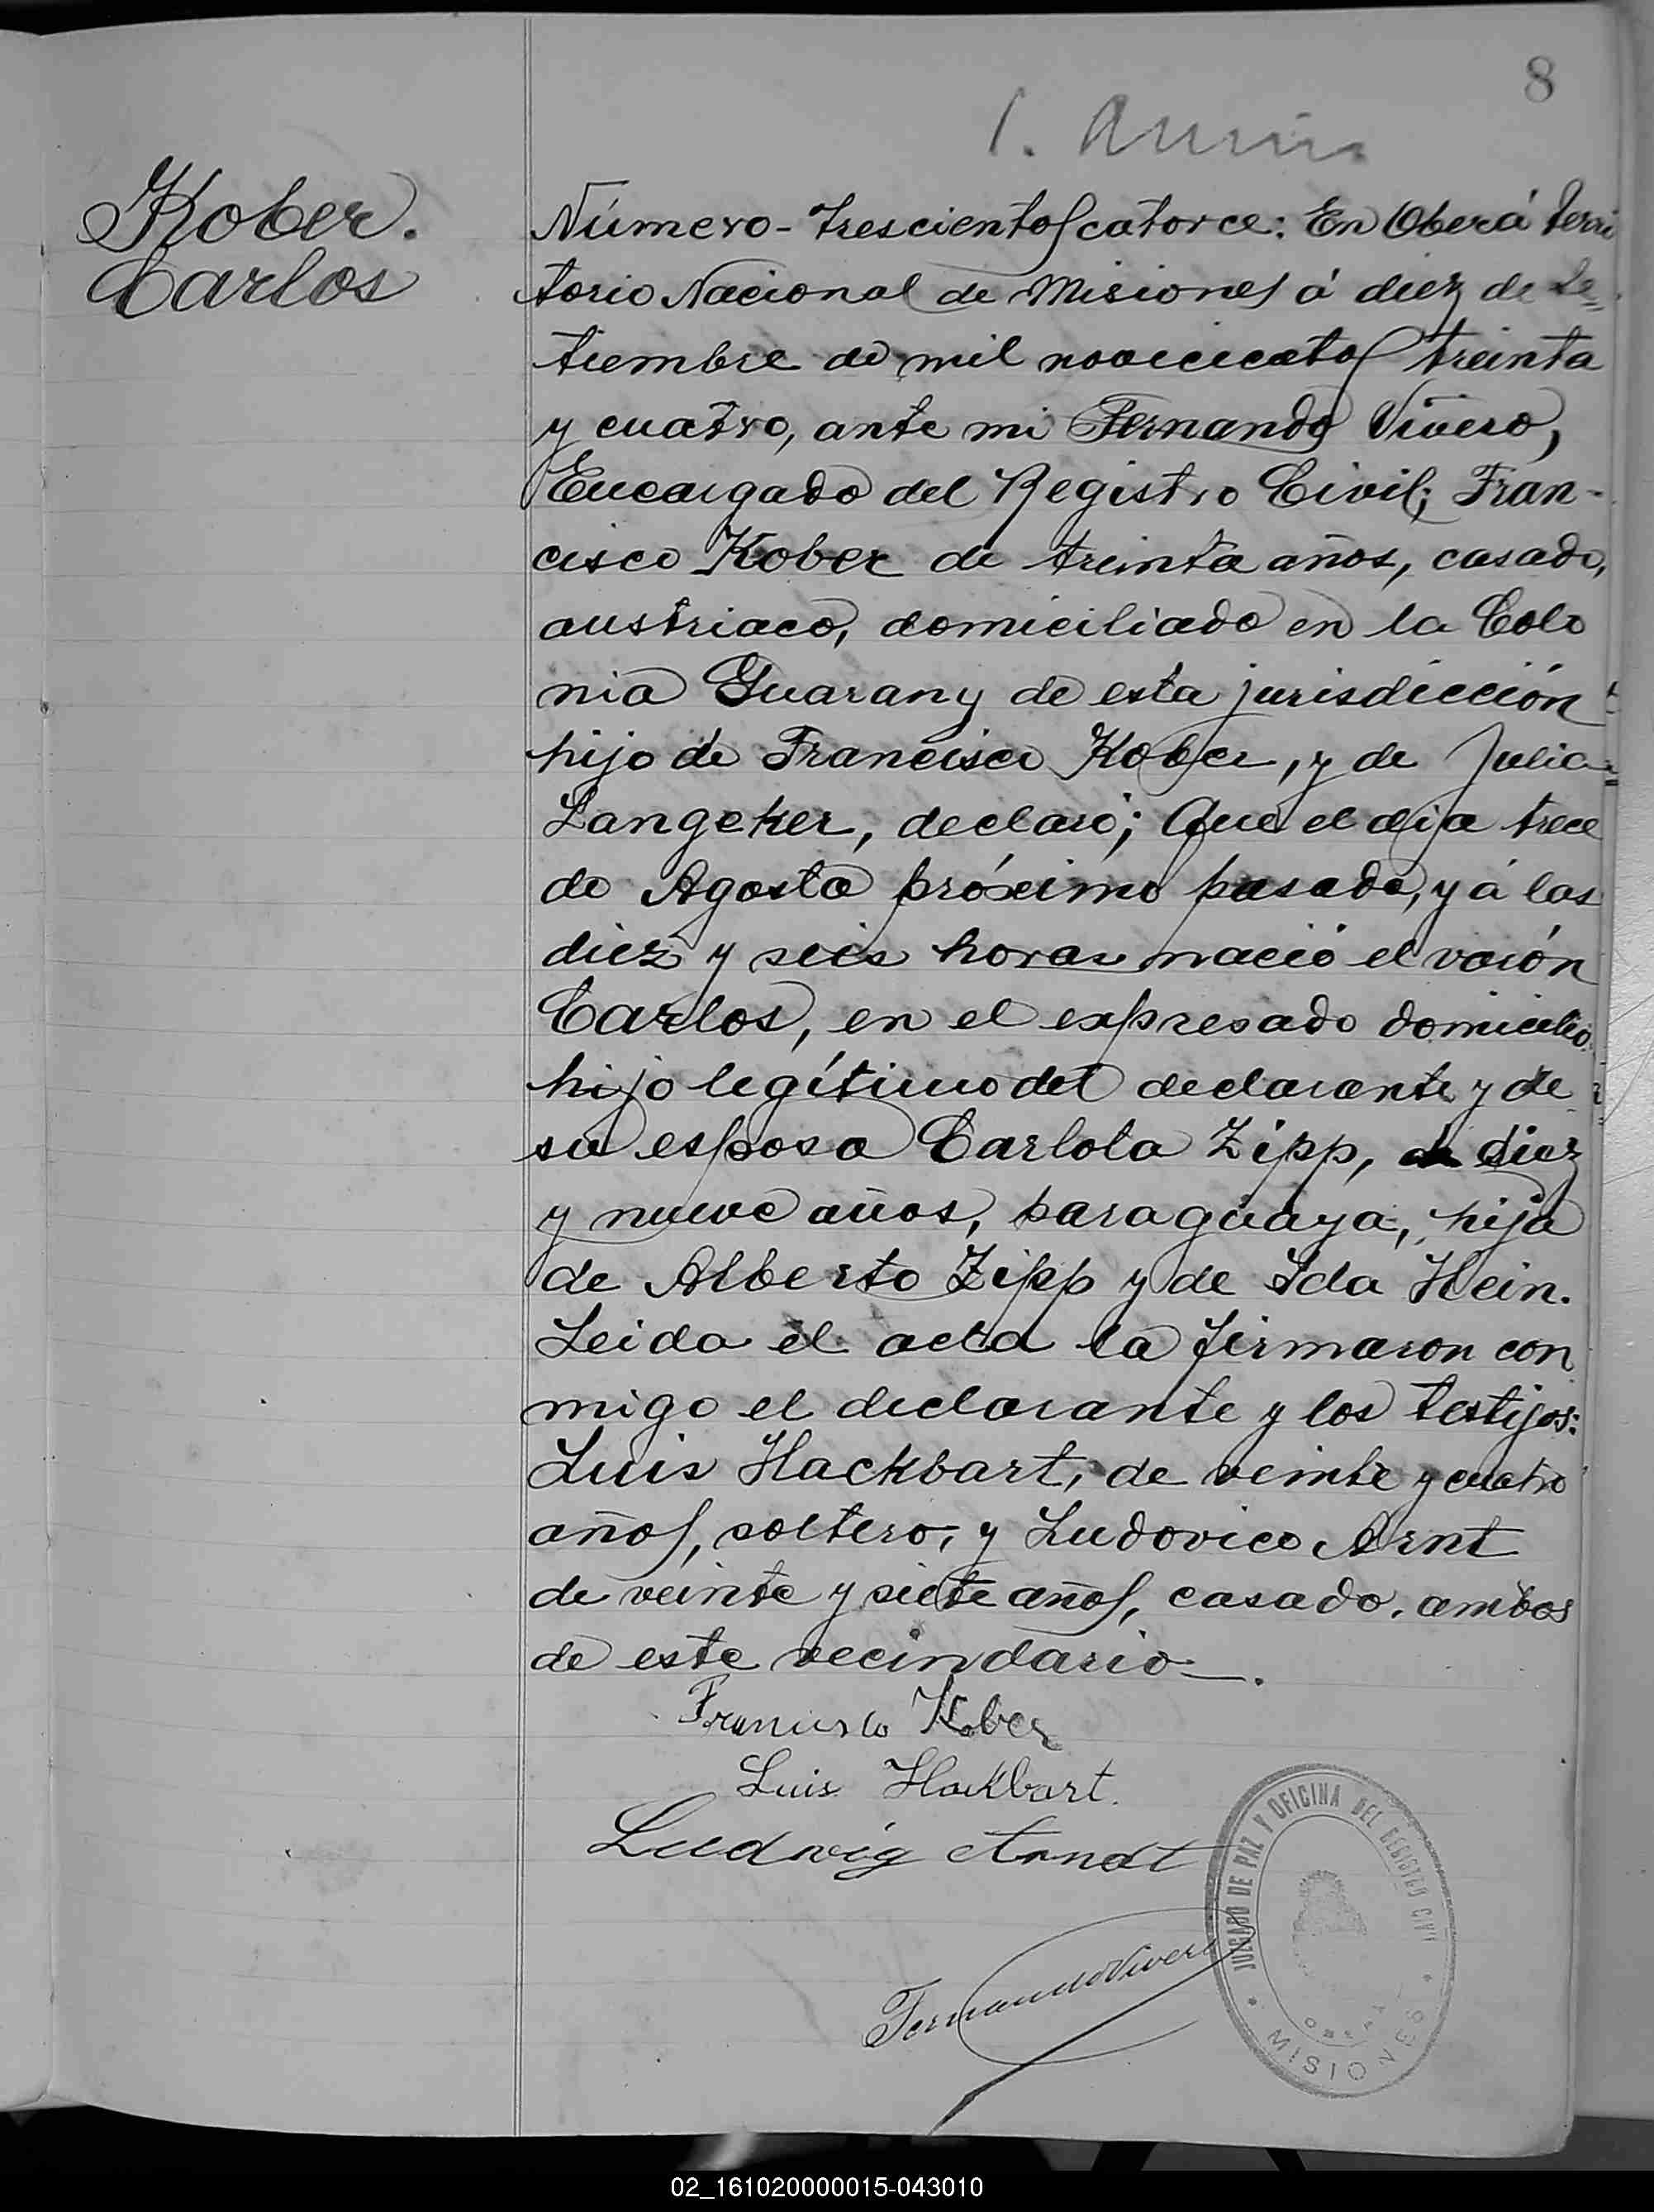 8
Kober.
Carlos
Número - trescientos catorce: En Oberá terri
torio Nacional de Misiones á diez de Se=
tiembre de mil novecicetos treinta
y cuatro, ante mi Fernando Vivero,
Encargado del Registro Civil; Fran-
cisco Kober de treinta años, casado,
austriaco, domiciliado en la Colo
nia Guarany de esta jurisdicción
hijo de Francisco Kober, y de Julia
Langeker, declaró; Que el dia trece
de Agosto próximo pasado, y á las
diez y seis horas nació el varón
Carlos, en el expresado domicilio.
hijo legítimo del declarante y de
su esposa Carlota Zipp, de diez
y nueve años, paraguaya, hija
de Alberto Zipp y de Ida Hein.
Leida el acta la firmaron con
migo el declarante y los testigos:
Luis Hackbart, de veinte y cuatro
años, soltero, y Ludovico Arnt
de veinte y siete años, casado. ambos
de este vecindario.
Francisco Kober
Luis Hackbart.
Ludwig Arndt
Fernando Vivero
JUZGADO DE PAZ Y OFICINA DEL REGISTRO CIVIL
OBERÁ
* MISIONES *
02_161020000015-043010